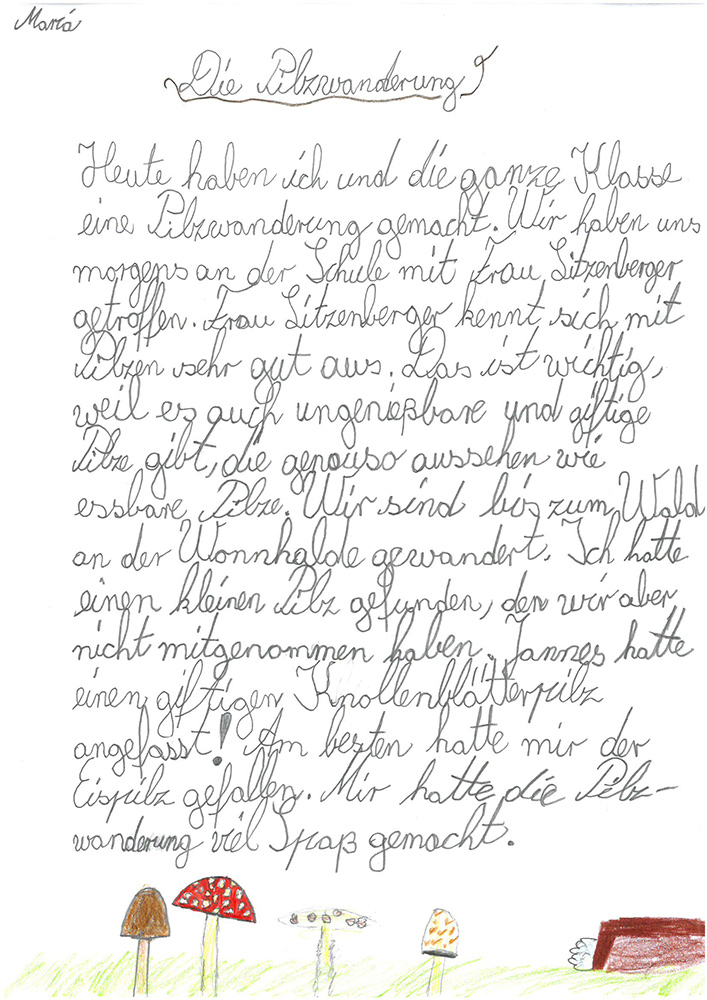 Maria
Die Pilzwanderung
Heute haben ich und die ganze Klasse
eine Pilzwanderung gemacht. Wir haben uns
morgens an der Schule mit Frau Litzenberger
getroffen. Frau Litzenberger kennt sich mit
Pilzen sehr gut aus. Das ist wichtig,
weil es auch ungenießbare und giftige
Pilze gibt, die genauso aussehen wie
essbare Pilze. Wir sind bis zum Wald
an der Wonnhalde gewandert. Ich hatte
einen kleinen Pilz gefunden, den wir aber
nicht mitgenommen haben. Jannes hatte
einen giftigen Knollenblätterpilz
angefasst! Am besten hatte mir der
Eispilz gefallen. Mir hatte die Pilz-
wanderung viel Spaß gemacht.